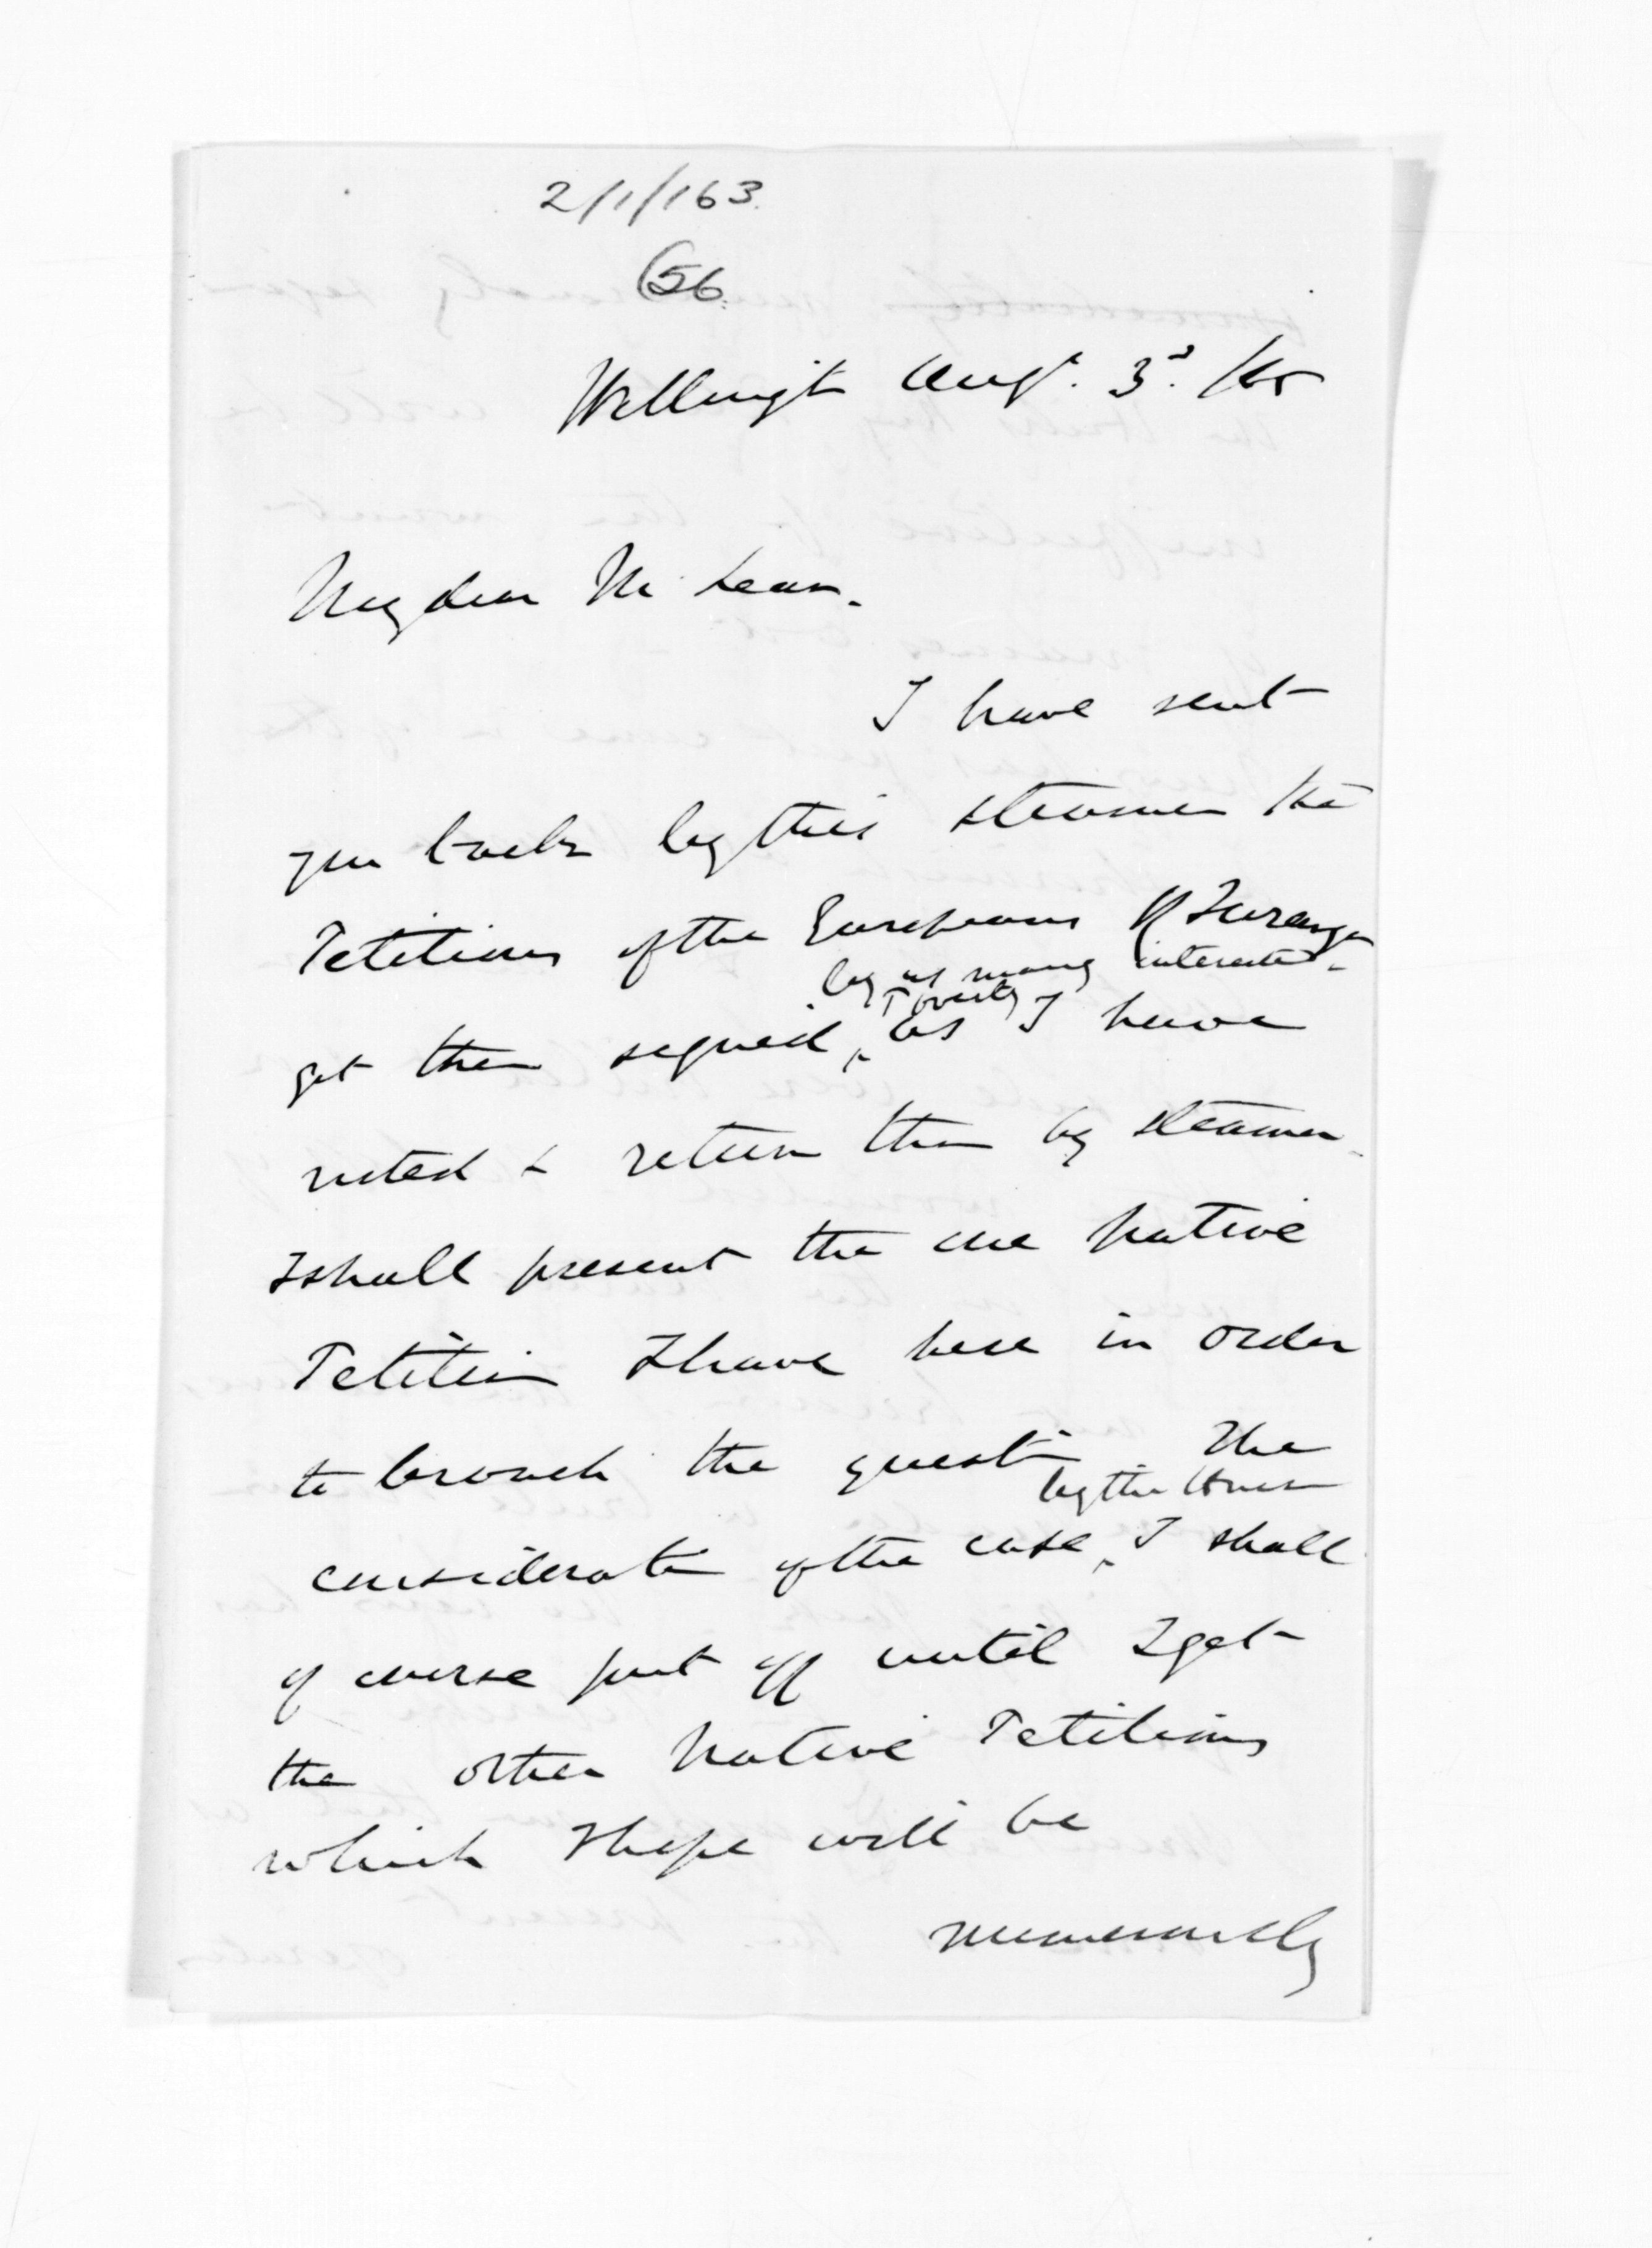 2/1/163.
(56
Wellingt Augt. 3d. /65
My dear McLean.
I have sent
you back by this steamer the
Petitions of the Europeans of Turanga
by as many interested
get them signed, as I have
noted & return them by steamer.
I shall present the one Native
Petition I have here in order
to broach the questn The
by the House
consideratn of the case, I shall
of course put off until I get
the other Native Petitions
which I hope will be
numerously